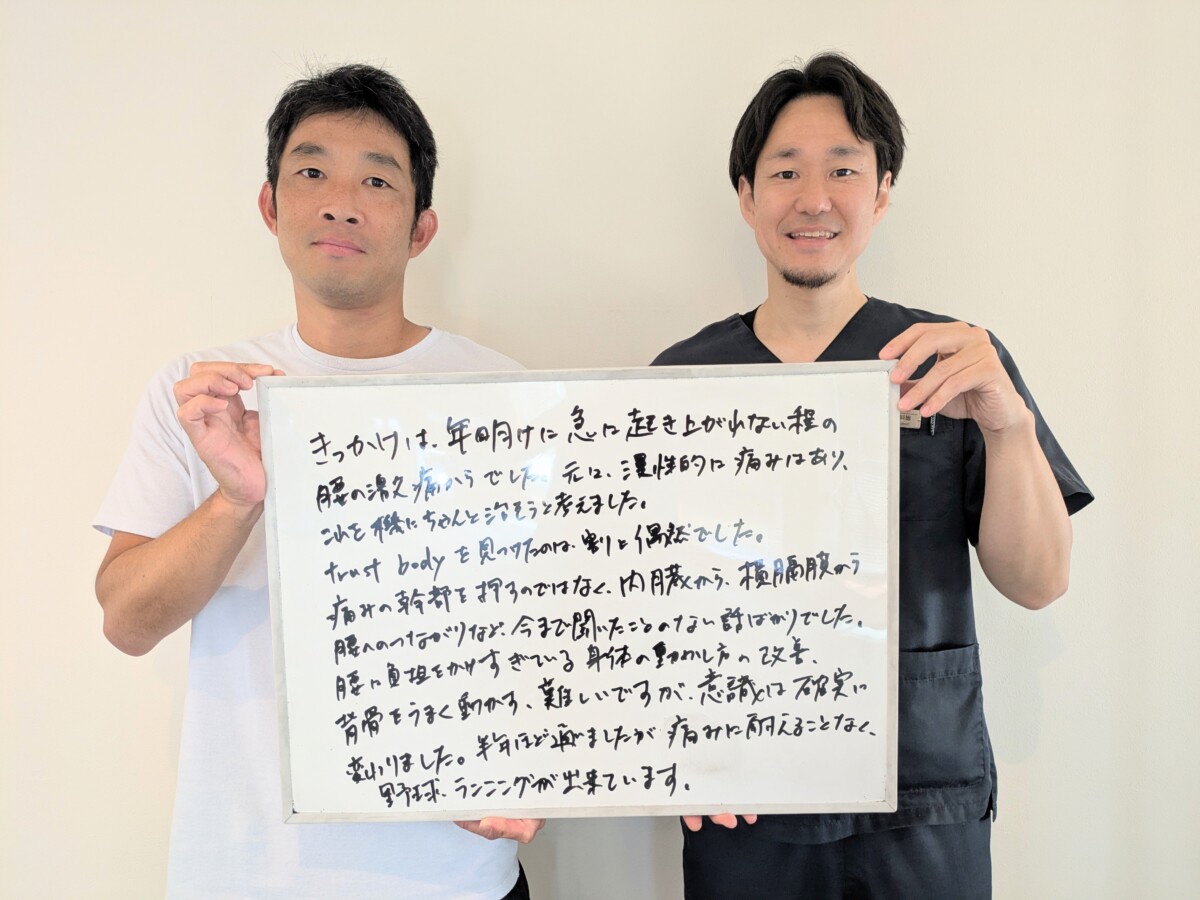 きっかけは、年明けに急に起き上がれない程の
腰の激痛からでした。元々、慢性的に痛みはあり、
これを機にちゃんと治そうと考えました。
trust body を見つけたのは、割と偶然でした。
痛みの幹部を押すのではなく、内臓から、横隔膜から
腰へのつながりなど、今まで聞いたことのない話ばかりでした。
腰に負担をかけすぎている身体の動かし方の改善、
背骨をうまく動かす、難しいですが、意識は確実に
変わりました。半年ほど通いましたが痛みに耐えることなく、
野球、ランニングが出来ています。